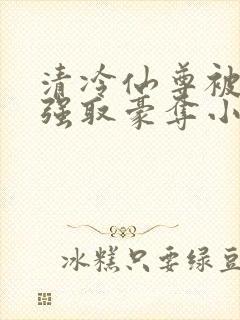 清冷仙尊被
强取豪夺小
冰糕只要绿豆